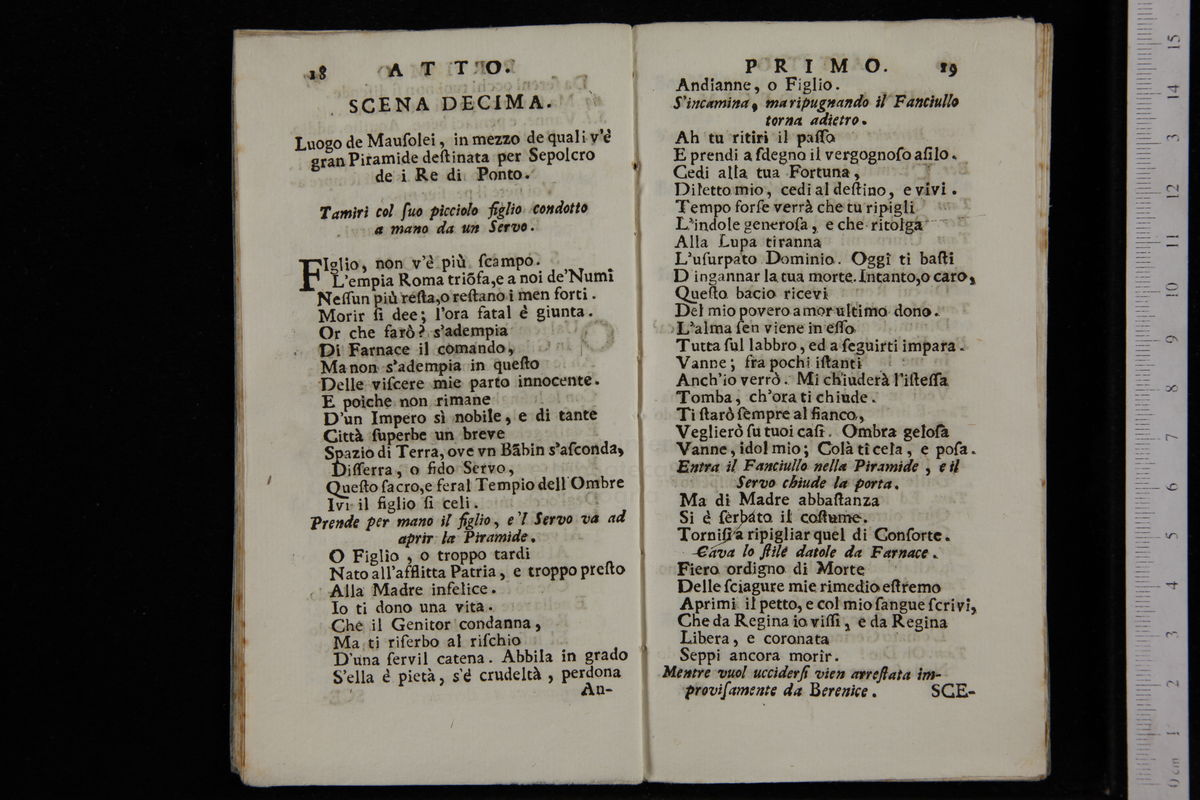 18 ATTO.
SCENA DECIMA.
Luogo de Mauſolei, in mezzo de quali v'è
gran Piramide deſtinata per Sepolcro
de i Re di Ponto.
Tamiri col ſuo picciolo figlio condotto
a mano da un Servo.
FIglio, non v'è più ſcampo.
L'empia Roma triõfa,e a noi de'Numi
Neſſun più reſta,o reſtano i men forti.
Morir ſi dee; l'ora fatal è giunta.
Or che farò? s'adempia
Di Farnace il comando,
Ma non s'adempia in queſto
Delle viſcere mie parto innocente.
E poiche non rimane
D'un Impero sì nobile, e di tante
Città ſuperbe un breve
Spazio di Terra, ove vn Bãbin s'aſconda,
Diſſerra, o fido Servo,
Queſto ſacro,e feral Tempio dell'Ombre
Ivi il figlio ſi celi.
Prende per mano il figlio, e'l Servo va ad
aprir la Piramide.
O Figlio, o troppo tardi
Nato all'afflitta Patria, e troppo preſto
Alla Madre infelice.
Io ti dono una vita.
Che il Genitor condanna,
Ma ti riſerbo al riſchio
D'una ſervil catena. Abbila in grado
S'ella è pietà, s'é crudeltà, perdona
An-
PRIMO. 19
Andianne, o Figlio.
S'incamina, ma ripugnando il Fanciullo
torna adietro.
Ah tu ritiri il paſſo
E prendi a ſdegno il vergognoſo aſilo.
Cedi alla tua Fortuna,
Diletto mio, cedi al deſtino, e vivi.
Tempo forſe verrà che tu ripigli
L'indole generoſa, e che ritolga
Alla Lupa tiranna
L'uſurpato Dominio. Oggi ti baſti
D ingannar la tua morte. Intanto,o caro,
Queſto bacio ricevi
Del mio povero amor ultimo dono.
L'alma ſen viene in eſſo
Tutta ſul labbro, ed a ſeguirti impara.
Vanne; fra pochi iſtanti
Anch'io verrò. Mi chiuderà l'iſteſſa
Tomba, ch'ora ti chiude.
Ti ſtarò ſempre al fianco,
Veglierò ſu tuoi caſi. Ombra geloſa
Vanne, idol mio; Colà ti cela, e poſa.
Entra il Fanciullo nella Piramide, e il
Servo chiude la porta.
Ma di Madre abbaſtanza
Si è ſerbato il coſtume.
Torniſi a ripigliar quel di Conſorte.
Cava lo ſtile datole da Farnace.
Fiero ordigno di Morte
Delle ſciagure mie rimedio eſtremo
Aprimi il petto, e col mio ſangue ſcrivi,
Che da Regina io viſſi, e da Regina
Libera, e coronata
Seppi ancora morir.
Mentre vuol ucciderſi vien arreſtata im-
proviſamente da Berenice. SCE-
0 cm 1 2 3 4 5 6 7 8 9 10 11 12 13 14 15